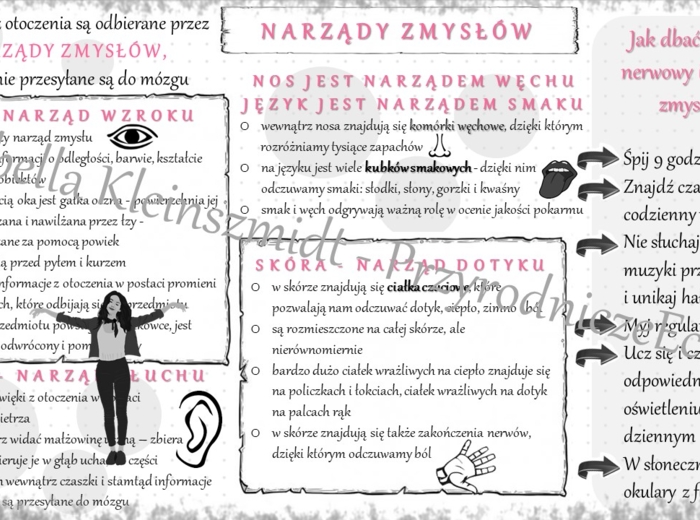 z otoczenia są odbierane przez
ZĄDY ZMYSŁÓW,
nie przesyłane są do mózgu
NARZĄD WZROKU
ty narząd zmysłu
informacji o odległości, barwie, kształcie
obiektów
cią oka jest gałka oczna - powierzchnia jej
zana i nawilżana przez łzy -
ane za pomocą powiek
ą przed pyłem i kurzem
nformacje z otoczenia w postaci promieni
ch, które odbijają się przedmiotu
zedmiotu jest
odwrócony i
- NARZĄD SŁUCHU
więki z otoczenia w postaci
ietrza
rz widać małżowinę uszną – zbiera
ieruje je w głąb ucha części
wewnątrz czaszki i stamtąd informacje
są przesyłane do mózgu
NARZĄDY ZMYSŁÓW
NOS JEST NARZĄDEM WĘCHU
JĘZYK JEST NARZĄDEM SMAKU
o wewnątrz nosa znajdują się komórki węchowe, dzięki którym
rozróżniamy tysiące zapachów
o na języku jest wiele kubków smakowych - dzięki nim
odczuwamy smaki: słodki, słony, gorzki i kwaśny
o smak i węch odgrywają ważną rolę w ocenie jakości pokarmu
SKÓRA - NARZĄD DOTYKU
o w skórze znajdują się ciałka czuciowe, które
pozwalają nam odczuwać dotyk, ciepło, zimno i ból
o są rozmieszczone na całej skórze, ale
nierównomiernie
o bardzo dużo ciałek wrażliwych na ciepło znajduje się
na policzkach i łokciach, ciałek wrażliwych na dotyk
na palcach rąk
o w skórze znajdują się także zakończenia nerwów,
dzięki którym odczuwamy ból
Jak dbać
nerwowy
zmys
Śpij 9 godz
Znajdź cza
codzienny
Nie słuchaj
muzyki prz
i unikaj ha
Myj regula
Ucz się i cz
odpowiedn
oświetleniu
dziennym
W słoneczn
okulary z f
bella Kleinszmidt - Przyrodnicze Ec